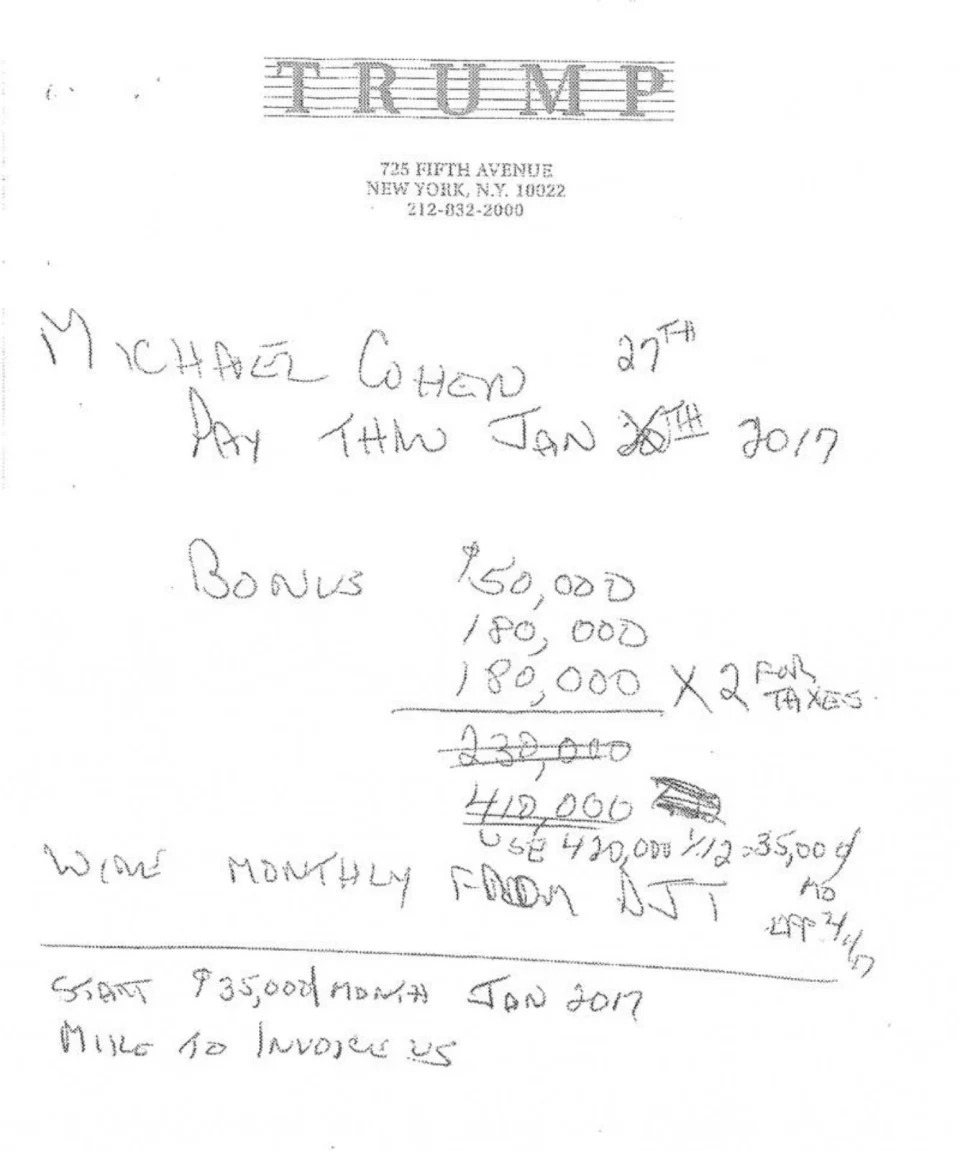 TRUMP
725 FIFTH AVENUE
NEW YORK, N.Y. 10022
212-832-2000
MICHAEL COHEN 27TH
PAY THRU JAN TH 2017
BONUS $50,000
180,000
180,000 X 2 FOR
TAXES
230,000
410,000
USE 420,000 ÷ 12 = 35,000/
MO
WIRE MONTHLY FROM DJT
EFF 2/1/17
START $35,000/MONTH JAN 2017
MIKE TO INVOICE US